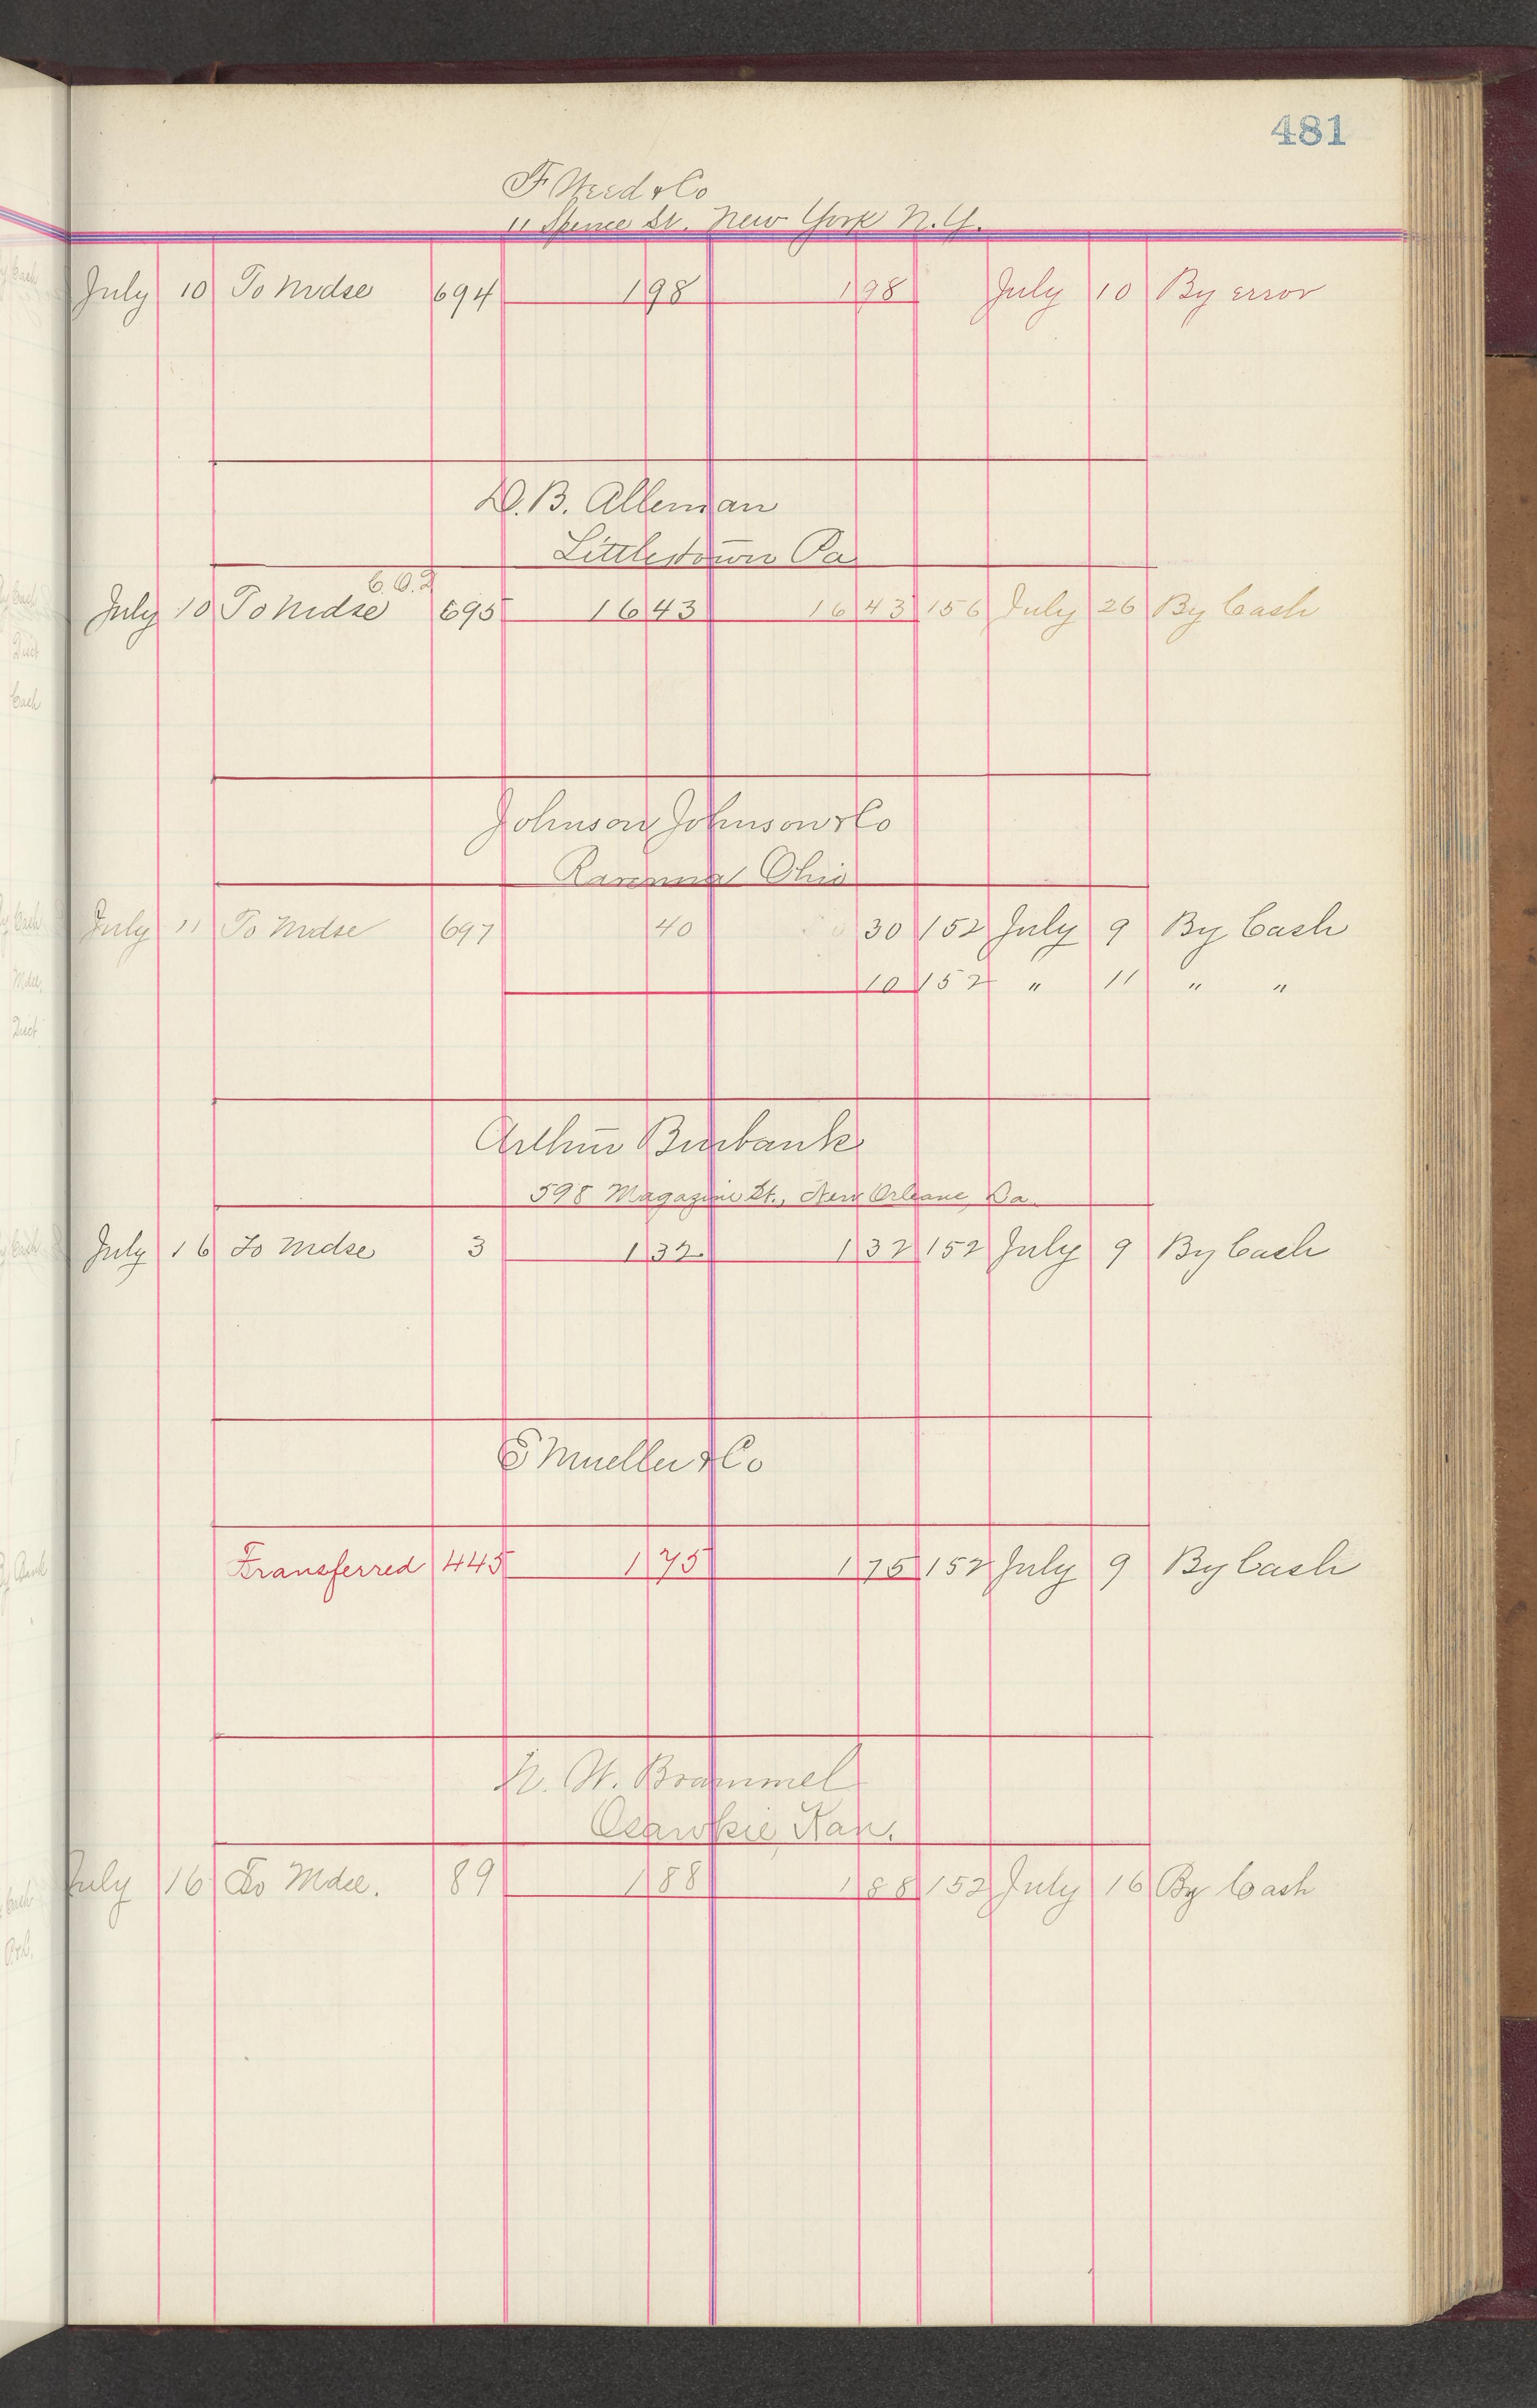 481
F. Weed & Co
11 Spence St. New York N.Y.
July 10 To Mdse 694 1 98 1 98 July 10 By error
D. B. Alleman
Littlestown Pa
C. O. D
July 10 To Mdse 695 16 43 16 43 156 July 26 By Cash
Johnson Johnson & Co
Ravenna Ohio
July 11 To Mdse 697 40 30 152 July 9 By Cash
10 152 " 11 " "
Arthur Burbank
598 Magazine St., New Orleans, La.
July 16 To Mdse 3 1 32 1 32 152 July 9 By Cash
E Mueller & Co
Transferred 445 1 75 1 75 152 July 9 By Cash
W. Brammel
Osawkie Kan.
July 16 To Mdse. 89 1 88 1 88 152 July 16 By Cash